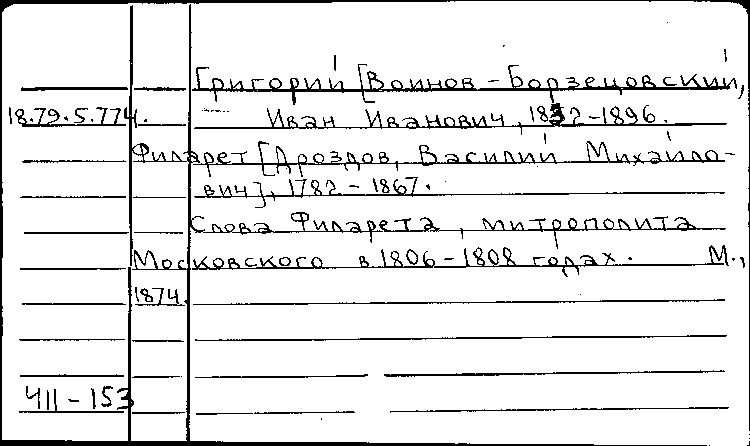 Григорий [Воинов-Борзецовский,
18.79.5.774. — Иван Иванович, 1832-1896.
Филарет [Дроздов, Василий Михайло-
вич], 1782-1867.
Слова Филарета, митрополита
Московского в 1806-1808 годах. М.,
1874.
411-153